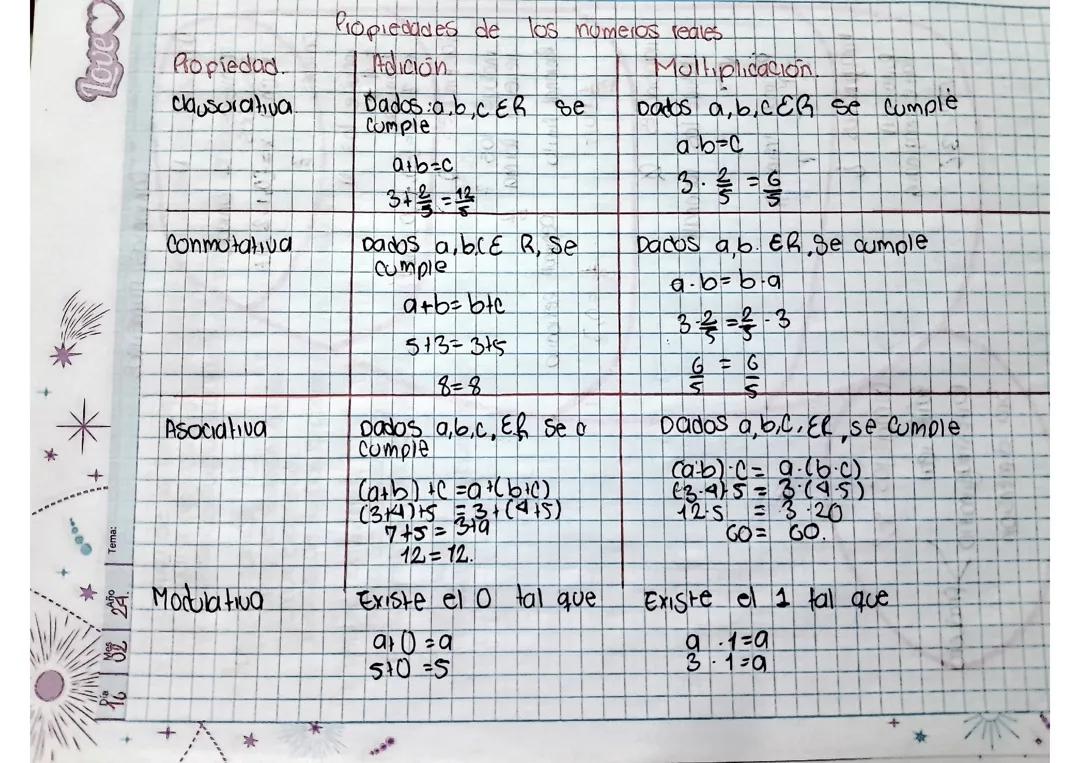 Love
Propiedades de los números reales
Propiedad. Adición Multiplicación.
clausurativa
Dados: a, b, c ∈ R se
cumple
a+b=c
3+2/5=12/5
Datos a, b, c ∈ R se cumple
a·b=c
3·2/5=6/5
Conmutativa
Dados a, b, c ∈ R, se
cumple
a+b=b+c
5+3=3+5
8=8
Dados a, b. ∈ R, se cumple
a·b=b·a
3·2/5=2/5·3
6/5=6/5
Asociativa
Dados a, b, c, ∈ R se
cumple
(a+b)+c=a+(b+c)
(3+4)+5=3+(4+5)
7+5=3+9
12=12.
Dados a, b, c. ∈ R, se cumple
(a·b)·c=a·(b·c)
(3·4)·5=3·(4·5)
12·5=3·20
60=60.
Modulativa
Existe el 0 tal que
a+0=a
5+0=5
Existe el 1 tal que
a·1=a
3·1=a
Tema:
Año 24.
Mes 02
Día 16